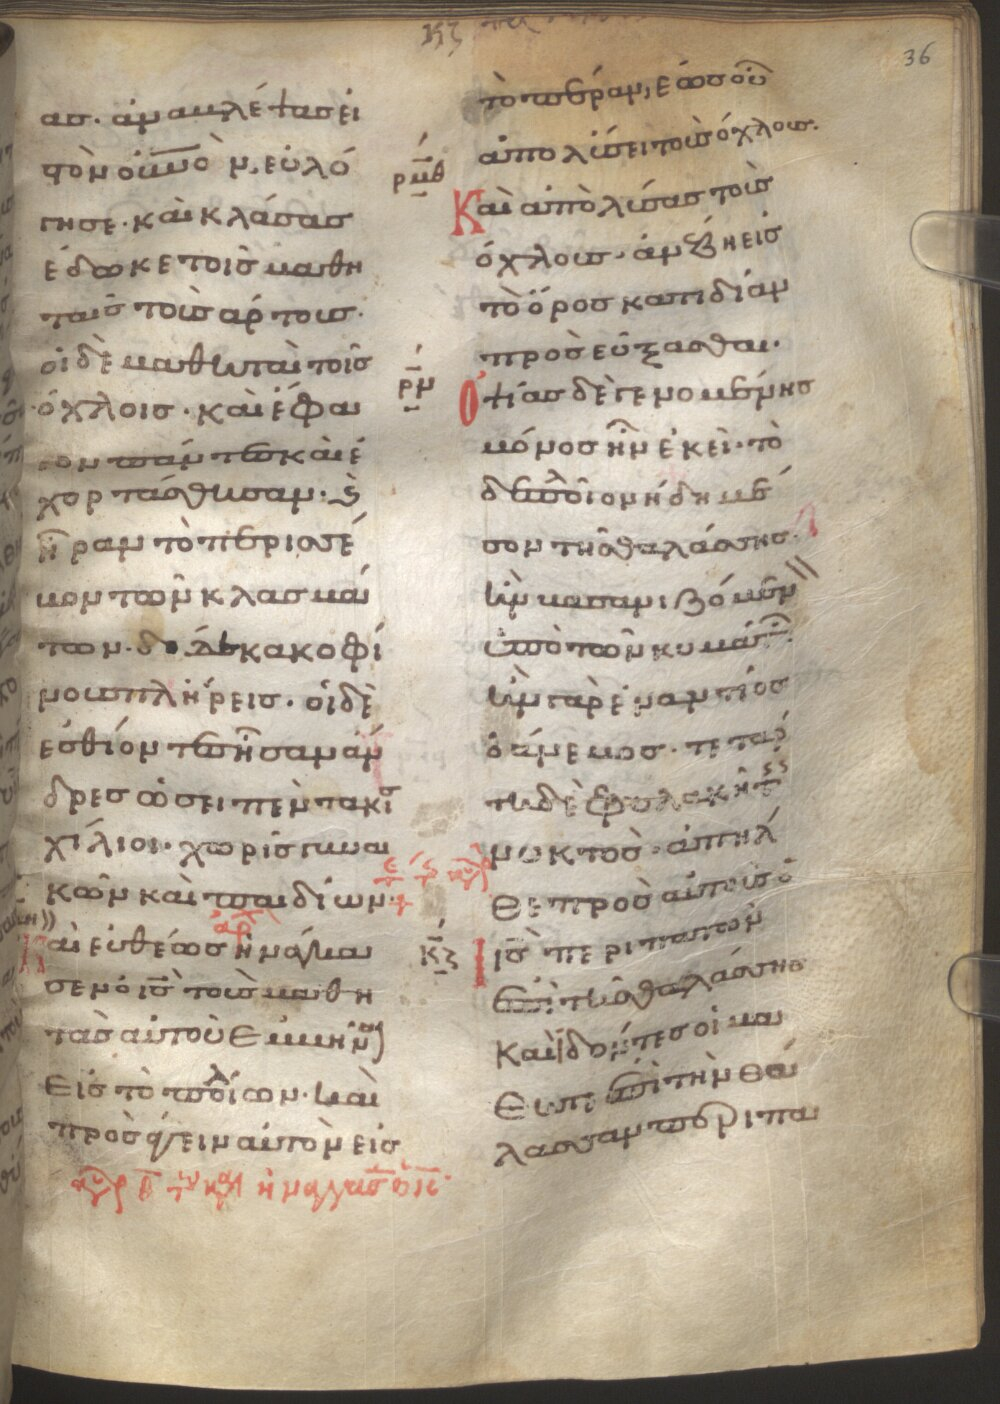 36
ας· ἀναβλέψας εἰ
τὸν οὐνὸν, εὐλό
γησε· καὶ κλάσας
ἔδωκε τοῖς μαθη
ταῖς τοὺς ἄρτους·
οἱ δὲ μαθηταὶ τοῖς
ὄχλοις· καὶ ἔφα
γον πάντες καὶ ἐ
χορτάσθησαν· καὶ
ἦραν τὸ περισσέ
μον τῶν κλασμά
των· δώδεκα κοφί
νους πλήρεις· οἱ δὲ
ἐσθίοντες ἦσαν ἄν
δρες ὡσεὶ πεντακι
χίλιοι· χωρὶς γυναι
κῶν καὶ παιδίων·
Καὶ εὐθέως ἠνάγκα
σεν ὁ ις τοὺς μαθη
τὰς αὐτοῦ ἐμβῆναι
εἰς τὸ πλοῖον· καὶ
προσάγειν αὐτὸν εἰς
τὸ πέραν, ἕως οὗ
ἀπολύσει τοὺς ὄχλους·
ρμθ
Καὶ ἀπολύσας τοὺς
ὄχλους· ἀνέβη εἰς
τὸ ὄρος κατιδίαν
προσεύξασθαι·
ρν
Ὀψίας δὲ γενομένης
μόνος ἦν ἐκεῖ· τὸ
δὲ πλοῖον ἤδη μέ
σον τῆς θαλάσσης·
ἦν βασανιζόμενον
ὑπὸ τῶν κυμάτων·
ἦν γὰρ ἐναντίος
ὁ ἄνεμος· τετάρ
τη δὲ φυλακῇ τῆς
νυκτὸς· ἀπῆλ
θε πρὸς αὐτοὺς ὁ
κζ
ις περιπατῶν
ἐπὶ τῆς θαλάσσης
Καὶ ἰδόντες οἱ μα
θηταὶ ἐπὶ τὴν θά
λασσαν περιπα